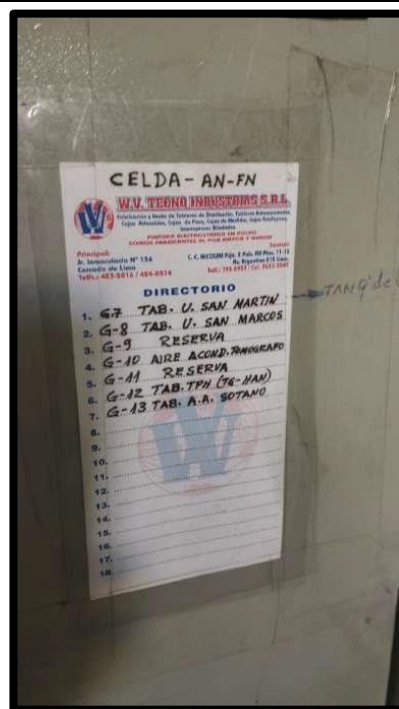 CELDA-AN-FN
W.V. TECNO INDUSTRIAS S.R.L.
Principal:
Jr. Inmaculada Nº 156
Cercado de Lima
DIRECTORIO
1. G7 TAB. U. SAN MARTIN
2. G-8 TAB. U. SAN MARCOS
3. G-9 RESERVA
4. G-10 AIRE ACOND. TOMOGRAFO
5. G-11 RESERVA
6. G-12 TAB. TPH (TG-HAN)
7. G-13 TAB. A.A. SOTANO
8.
9.
10.
11.
12.
13.
14.
15.
16.
17.
18.